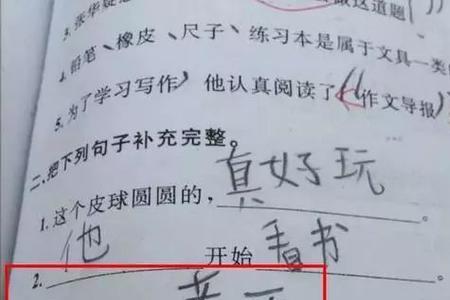 3.张华疑
做这道题
4.铅笔、橡皮、尺子、练习本是属于文具一类
5.为了学习写作,他认真阅读了《作文导报》
二、把下列句子补充完整。
1.这个皮球圆圆的,真好玩。
2.他开始看书。